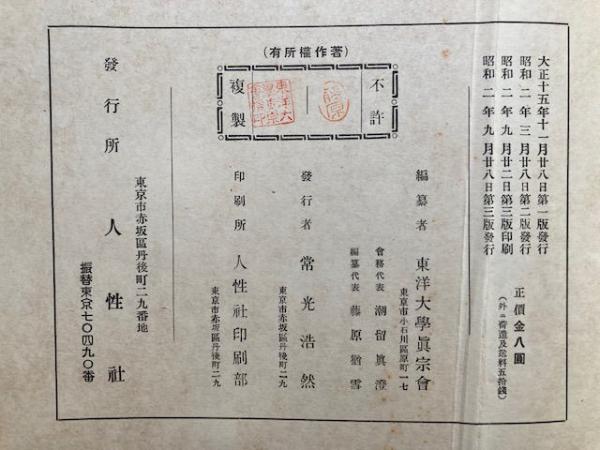 大正十五年十一月廿八日第一版發行
昭和二年三月廿八日第二版發行
昭和二年九月廿二日第三版印刷
昭和二年九月廿八日第三版發行
正價金八圓
(外ニ荷造及送料五拾錢)
(著作權所有)
不許
複製
編纂者 東洋大學眞宗會
東京市小石川區原町一七
會務代表 潮留眞澄
編纂代表 藤原猶雪
發行者 常光浩然
東京市赤坂區丹後町二九
印刷所 人性社印刷部
東京市赤坂區丹後町二九
東京市赤坂區丹後町二九番地
發行所 人性社
振替東京七〇四九〇番